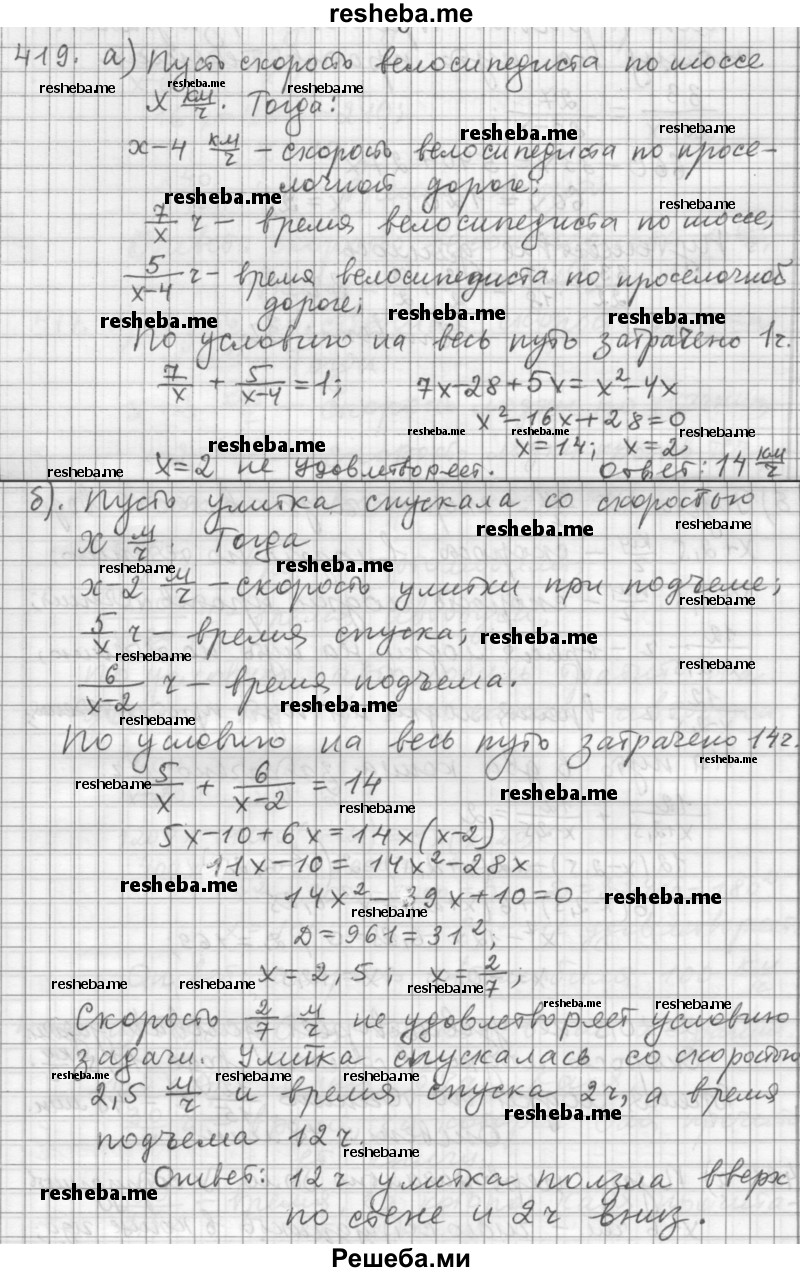 resheba.me
419. а) Пусть скорость велосипедиста по шоссе
resheba.me resheba.me resheba.me
x км/ч. Тогда:
resheba.me resheba.me
x-4 км/ч – скорость велосипедиста по просе-
лочной дороге;
resheba.me resheba.me
7/x ч – время велосипедиста по шоссе;
5/(x-4) ч – время велосипедиста по проселочной
дороге;
resheba.me resheba.me resheba.me
По условию на весь путь затрачено 1ч.
7/x + 5/(x-4) = 1; 7x-28+5x = x²-4x
x²-16x+28=0
resheba.me resheba.me
resheba.me x=14; x=2
resheba.me x=2 не удовлетворяет. Ответ: 14 км/ч
б). Пусть улитка спускала со скоростью
resheba.me resheba.me
x м/ч. Тогда
resheba.me resheba.me
x-2 м/ч – скорость улитки при подъеме;
resheba.me
5/x ч – время спуска; resheba.me
resheba.me resheba.me
6/(x-2) ч – время подъема.
resheba.me resheba.me
По условию на весь путь затрачено 14ч.
resheba.me
resheba.me 5/x + 6/(x-2) = 14
resheba.me resheba.me
5x-10+6x=14x(x-2)
11x-10 = 14x²-28x
resheba.me resheba.me
14x²-39x+10=0
resheba.me
Д=961=31²;
x=2,5; x=2/7;
resheba.me resheba.me resheba.me
resheba.me resheba.me
Скорость 2/7 м/ч не удовлетворяет условию
задачи. Улитка спускалась со скоростью
resheba.me resheba.me resheba.me
2,5 м/ч и время спуска 2ч, а время
resheba.me
подъема 12ч.
resheba.me
Ответ: 12ч улитка ползла вверх
resheba.me
по стене и 2ч вниз.
Решеба.ми